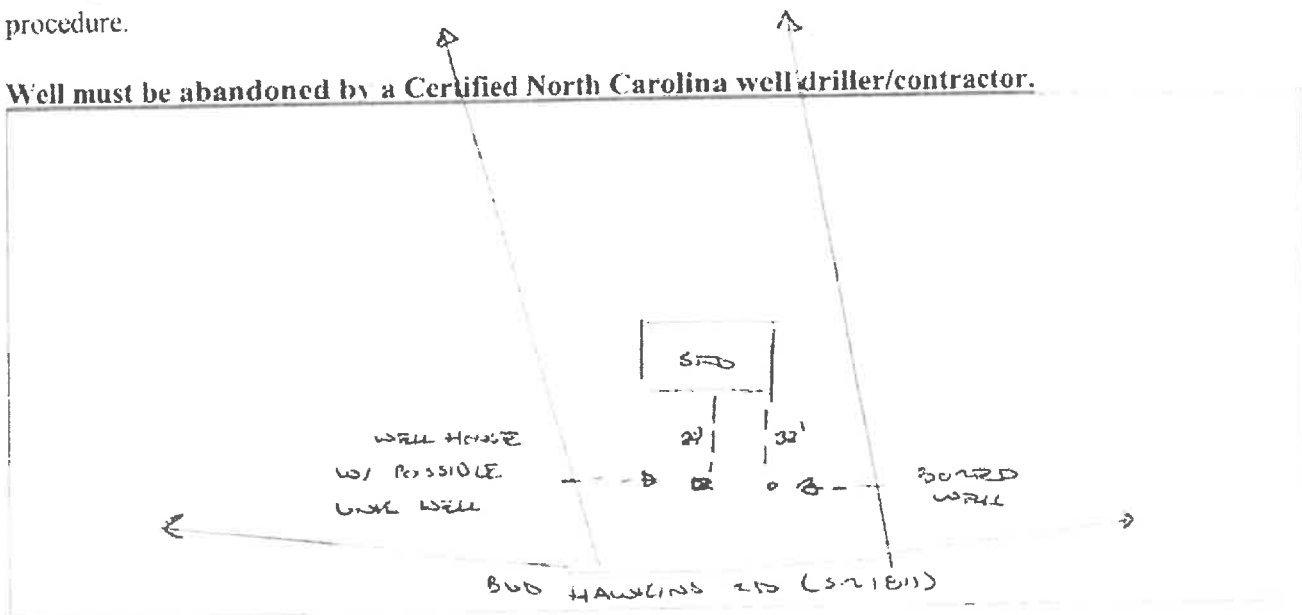 procedure.
Well must be abandoned by a Certified North Carolina well driller/contractor.
SFD
WELL HOUSE
W/ POSSIBLE
UNK WELL
32'
BORED
WELL
BUD HAWKINS RD (SR 1811)